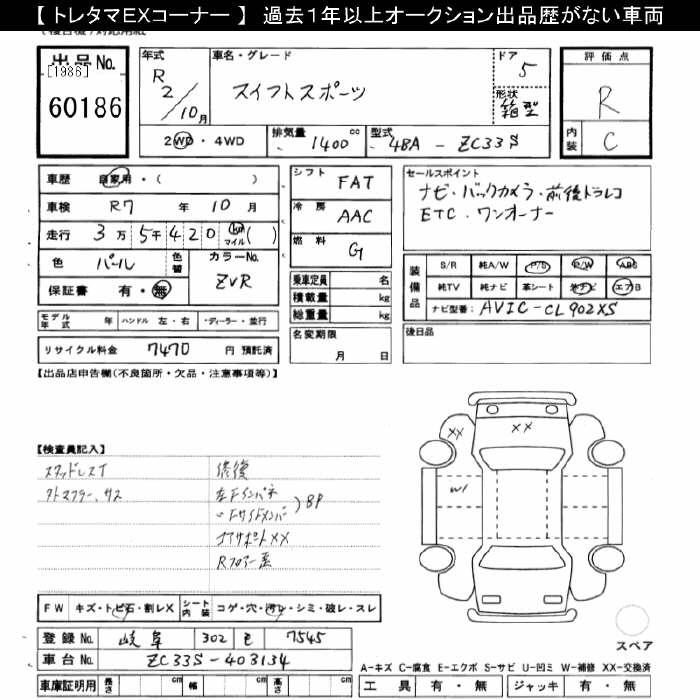 【 トレタマEXコーナー 】 過去1年以上オークション出品歴がない車両
出品No.
[1986]
60186
年式 車名・グレード ドア 評価点
R 2/10月 スイフトスポーツ 5 R
形状 箱型
2WD・4WD 排気量 1400 cc 型式 4BA - ZC33S 内装 C
車歴 自家用・( )
車検 R7 年 10 月
走行 3万 5千 4 2 0 km マイル ( )
色 パール 色替 カラーNo. ZVR
保証書 有・無
シフト FAT
冷房 AAC
燃料 G
乗車定員 名
積載量 kg
総重量 kg
セールスポイント
ナビ・バックカメラ・前後ドラレコ
ETC・ワンオーナー
装備品 S/R 純A/W P/S P/W ABS
純TV 純ナビ 革シート 社ナビ エアB
ナビ型番: AVIC-CL902XS
モデル年式 年 ハンドル 左・右 ・ディーラー・並行
リサイクル料金 7470 円 預託済
名変期限 月 日
後日品
【出品店申告欄(不良箇所・欠品・注意事項等)】
【検査員記入】
スタッドレスT
外マフラー、サス
修復
左Fインパネ
〃Fサイドメンバー ) BP
コアサポートXX
Rフロアー歪
XX
XX
W1
FW キズ・トビ石・割レX シート内装 コゲ・穴・汚レ・シミ・破レ・スレ
登録No. 岐阜 302 そ 7545
車台No. ZC33S-403134
車庫証明用 長さ cm 幅 cm 高さ cm
スペア
A-キズ C-腐食 E-エクボ S-サビ U-凹ミ W-補修 XX-交換済
工具 有・無 ジャッキ 有・無